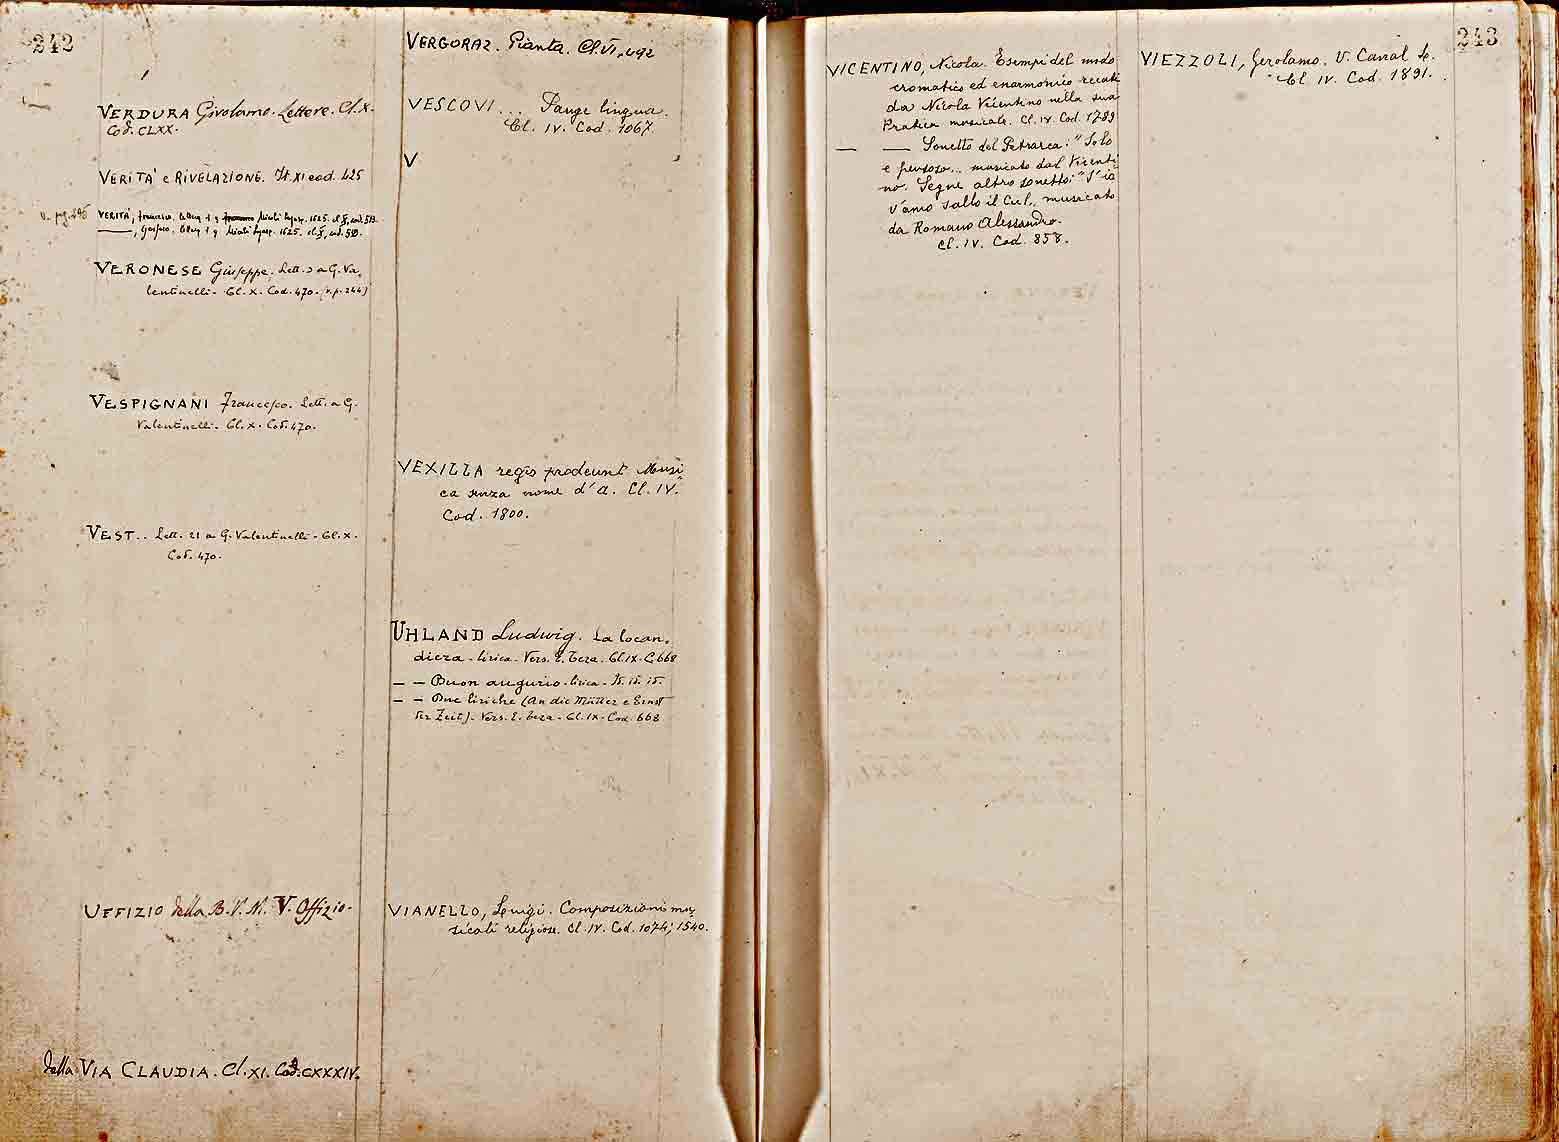 242
VERDURA Girolamo. Lettere. Cl. X.
Cod. CLXX.
VERITA' e RIVELAZIONE. It. XI cod. 425
v. pag. 246
VERITÀ, Francesco. 1625. cl. X, cod.
———, Gasparo. 1625. cl. X, cod.
VERONESE Giuseppe. Lett. 2 a G. Va-
lentinelli - Cl. X. Cod. 470. (v. p. 244)
VESPIGNANI Francesco. Lett. a G.
Valentinelli - Cl. X. Cod. 470.
VEST.. Lett. 21 a G. Valentinelli - Cl. X.
Cod. 470.
UFFIZIO della B. V. M. V. Offizio-
della VIA CLAUDIA. Cl. XI. Cod. CXXXIV.
VERGORAZ. Pianta. Cl. VI, 492
VESCOVI ... Pange lingua.
Cl. IV. Cod. 1067.
V
VEXILLA regis prodeunt. Musi-
ca senza nome d'A. Cl. IV.
Cod. 1800.
UHLAND Ludwig. La locan-
diera - lirica - Vers. E. Teza. Cl. IX - C. 668
— — Buon augurio - lirica - Id. id. id.
— — Due liriche (An die Mütter e Ernst
der Zeit). Vers. E. Teza - Cl. IX - Cod. 668
VIANELLO, Luigi. Composizioni mu-
sicali religiose. Cl. IV. Cod. 1074; 1540.
243
VICENTINO, Nicola. Esempi del modo
cromatico ed enarmonico recati
da Nicola Vicentino nella sua
Pratica musicale. Cl. IV. Cod. 1789
— — Sonetto del Petrarca: "Solo
e pensoso... musicato dal Vicenti-
no. Segue altro sonetto: "S'io
v'amo sallo il Ciel., musicato
da Romano Alessandro.
Cl. IV. Cod. 858.
VIEZZOLI, Gerolamo. V. Canal
Cl. IV. Cod. 1891.